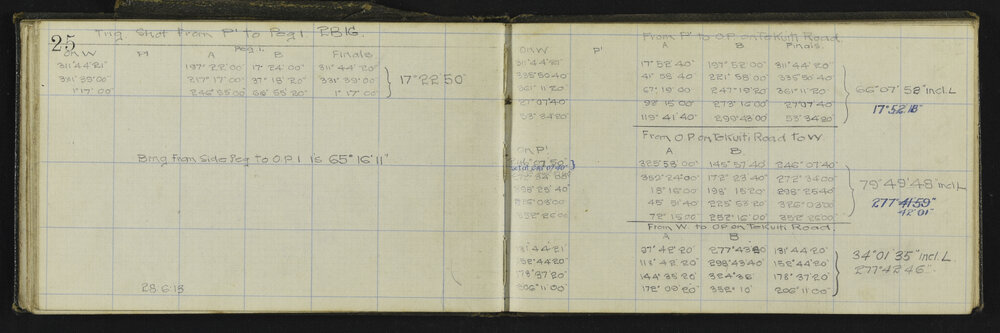 25
Trig Shot From P' to Peg 1. PB16.
Peg 1.
On W P' A B Finals
311°44'21" 197°22'00" 17°24'00" 311°44'20"
331°39'00" 217°17'00" 37°18'20" 331°39'00"
1°17'00" 246°55'00" 66°55'20" 1°17'00"
17°22'50"
Brng From Side Peg to O.P.1 is 65°16'11"
28.6.13
From P' to O.P. on Te Kuiti Road
On W P' A B Finals.
311°44'21" 17°52'40" 197°52'00" 311°44'20"
335°50'40" 41°58'40" 221°58'00" 335°50'40"
361°11'20" 67°19'00" 247°19'20" 361°11'20"
27°07'40" 92°15'00" 273°16'00" 27°07'40"
53°34'20" 119°41'40" 299°43'00" 53°34'20"
66°07'58" incl. L
17°52'18"
From O.P. on Te Kuiti Road to W
On P' A B.
325°58'00" 145°57'40" 246°07'40"
352°24'00" 172°23'40" 272°34'00"
298°25'40" 18°16'00" 198°15'20" 298°25'40"
326°03'00" 45°51'40" 225°53'20" 326°03'00"
352°26'00" 72°15'00" 252°16'00" 352°26'00"
79°49'48" incl. L
277°41'59"
42'01"
From W to O.P. on Te Kuiti Road.
A B
131°44'21" 97°42'20" 277°43'20" 131°44'20"
152°44'20" 118°42'20" 298°43'40" 152°44'20"
178°37'20" 144°35'20" 324°36' 178°37'20"
206°11'00" 172°09'20" 352°10' 206°11'00"
34°01'35" incl. L.
277°42'46"